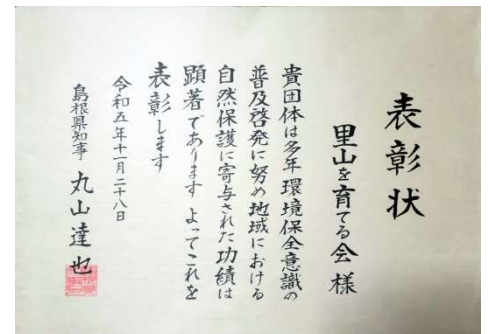 表彰状
里山を育てる会 様
貴団体は多年環境保全意識の
普及啓発に努め地域における
自然保護に寄与された功績は
顕著であります よってこれを
表彰します
令和五年十一月二十八日
島根県知事 丸山達也